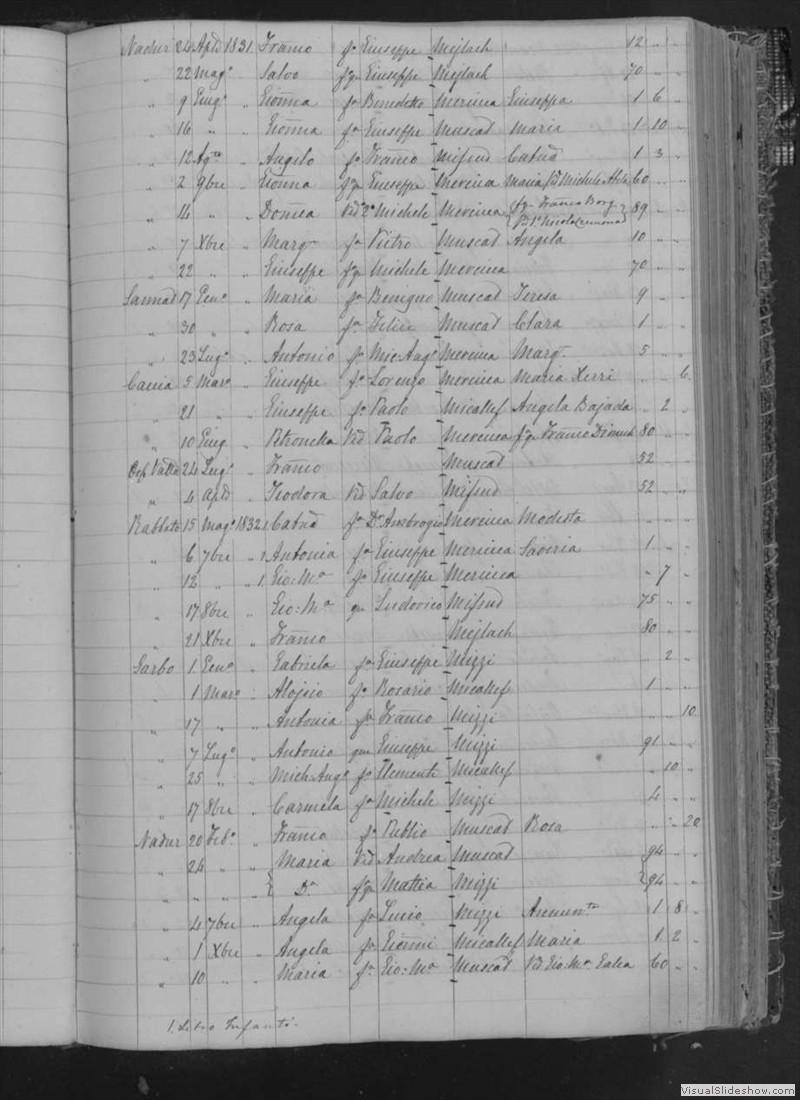 Nadur 24 Aple 1831. Franco fo Giuseppe Mejlach 12 " "
" 22 Mago " Salvo fqm Giuseppe Mejlach 70 " "
" 9 Giugo " Gioñna fa Benedetto Mercieca Giuseppa 1 6 "
" 16 " " Gioñna fa Giuseppe Muscad Maria 1 10 "
" 12 Agto " Angelo fo Franco Mifsud Catña 1 3 "
" 2 9bre " Gioñna fqm Giuseppe Mercieca Maria Vid Michele 60 " "
" 14 " " Domca Vid Michele Mercieca { fqm Franco Borg 89 " "
" 7 Xbre " Margta fa Pietro Muscad Angela 10 " "
" 22 " " Giuseppe fqm Michele Mercieca 70 " "
Sannat 17 Geno " Maria fa Benigno Muscad Teresa 9 " "
" 30 " " Rosa fa Felice Muscad Clara 1 " "
" 23 Lugo " Antonio fo Mic Ango Mercieca Margta 5 " "
Caccia 5 Maro " Giuseppe fo Lorenzo Mercieca Maria Xerri " " 6
" 21 " " Giuseppe fo Paolo Micallef Angela Bajada " 2 "
" 10 Giug " Petronella Vid Paolo Mercieca fqm Franco 80 " "
24 Lugo " Franco Muscad 52 " "
" 4 Aple " Teodora Vid Salvo Mifsud 52 " "
Rabbato 15 Mago 1832 1 Catña fa Dr Ambrogio Mercieca Modesta " " "
" 6 7bre " 1 Antonia fa Giuseppe Mercieca Saveria 1 " "
" 12 " " 1. Gio: Ma fo Giuseppe Mercieca " 7 "
" 17 8bre " Gio: Ma qm Ludovico Mifsud 75 " "
" 21 Xbre " Franco Mejlach 80 " "
Garbo 1 Geno " Gabriela fa Giuseppe Mizzi " 2 "
" 1 Maro " Alojsio fo Rosario Micallef 1 " "
" 17 " " Antonia fa Franco Mizzi " " 10
" 7 Lugo " Antonio qm Giuseppe Mizzi 91 " "
" 25 " " Mich Ango fo Clemente Micallef " 10 "
" 17 8bre " Carmela fa Michele Mizzi 4 " "
Nadur 20 Febo " Franco fo Publio Muscad Rosa " " 20
" 24 " " Maria Vid Andrea Muscad { 94 " "
" " " " { Da fqm Mattia Mizzi { 94 " "
" 4 7bre " Angela fa Lucio Mizzi Annunta 1 8 "
" 1 Xbre " Angela fa Gioñni Micallef Maria 1 2 "
" 10 " " Maria fa Gio: Ma Muscad Vid Gio: Ma Galea 60 " "
1. Libro Infanti.
VisualSlideshow.com